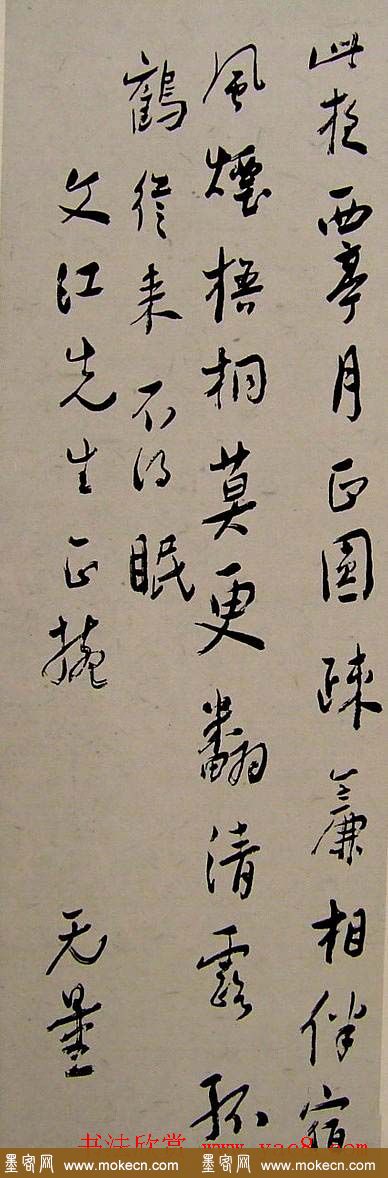 此夜西亭月正圆疎簾相伴宿
風煙梧桐莫更翻清露孤
鶴從来不得眠
文江先生正捥
无量
书法欣赏 www.yac8.com
墨客网 www.mokecn.com 墨客网 www.mokecn.com